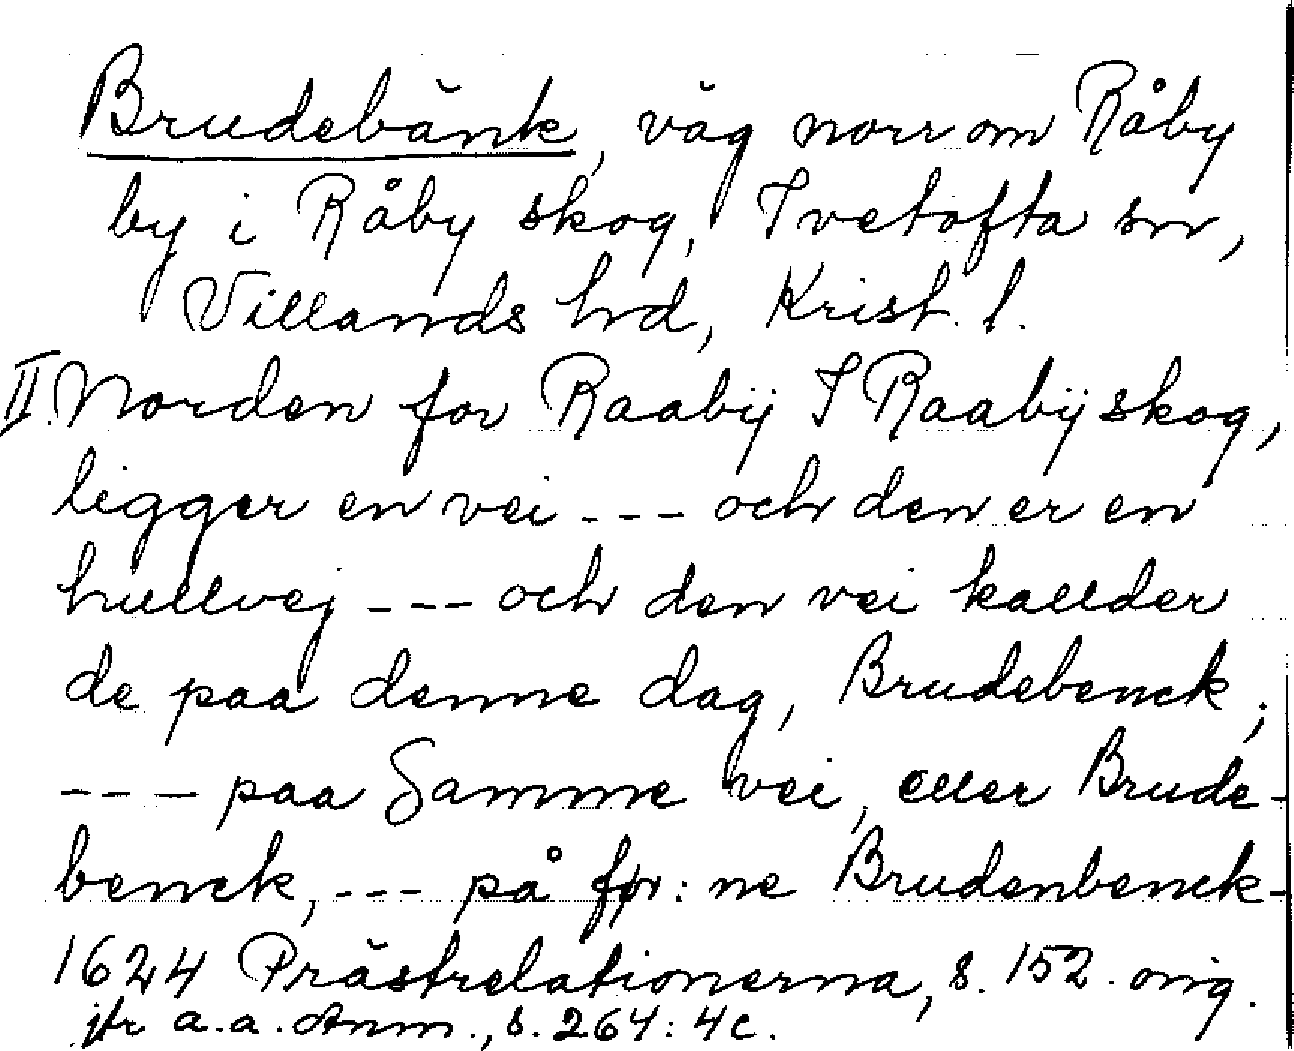 Brudebänk, väg norr om Råby
by i Råby skog, Ivetofta sn,
Villands hd, Krist. l.
II. Norden for Raabÿ I Raabÿ skog,
ligger en vei --- och den er en
hullvej --- och den vei kallder
de paa denne dag, Brudebenck;
--- paa Samme vei, eller Brude-
benck, --- på før: ne Brudenbenck-
1624 Prästrelationerna, s. 152. orig.
jfr a.a. Anm., s. 264: 4c.